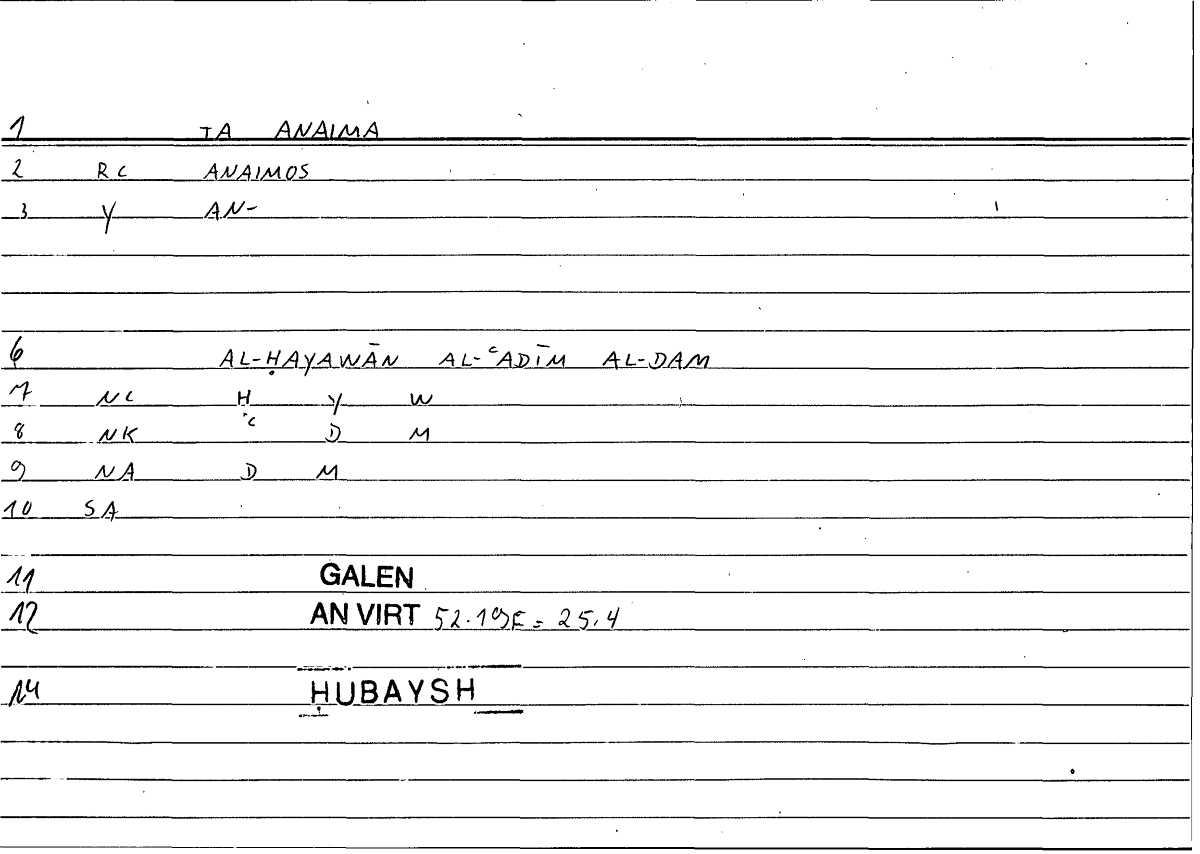 1 TA ANAIMA
2 RC ANAIMOS
3 Y AN-
6 AL-ḤAYAWĀN AL-ʿADĪM AL-DAM
7 NC Ḥ Y W
8 NK ʿ D M
9 NA D M
10 SA
11 GALEN
12 AN VIRT 52.19E = 25.4
14 ḤUBAYSH